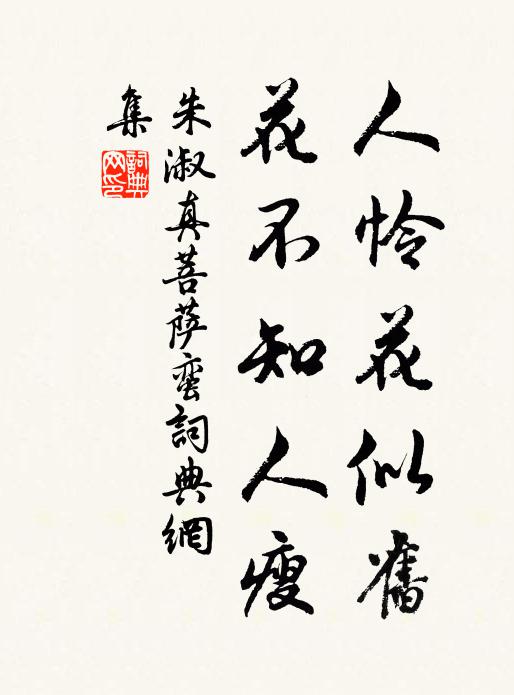 人怜花似舊
花不知人瘦
朱淑真菩萨蛮詞典網
集
詞典网印